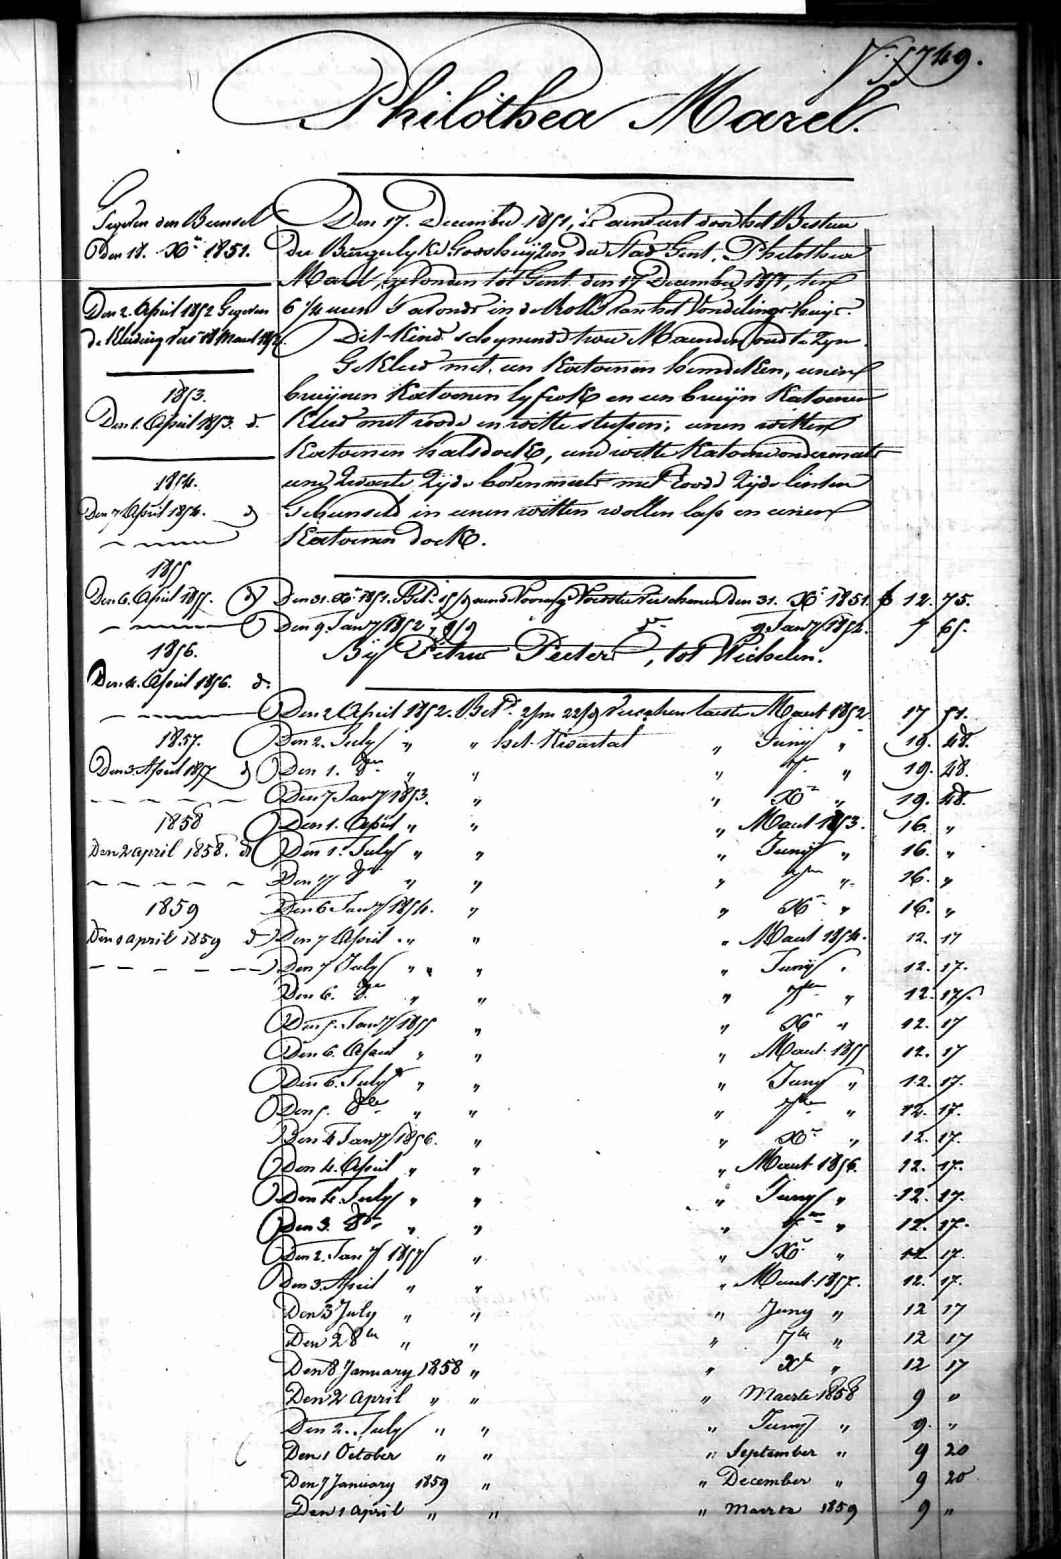 1749.
Philothea Marel.
Den 17. December 1851, is aenveirt door het Bestuer
der Burgelyke Godshuijzen der Stad Gent, Philothea
Marel, gevonden tot Gent den 17 December 1851, ten
6 1/4 uren 's avonds in de Rolle van het Vondelings huijs.
Dit Kind schynende twee Maenden oud te zyn.
Gekleed met een Katoenen hemdeken, eenen
bruijnen Katoenen lyfrok en een bruijn Katoenen
Kleed met roode en witte stupen; eenen witten
Katoenen halsdoek, eene witte Katoene ondermuts
eene Zwarte Zijde bovenmuts met roode Zijde linten
Gebunseld in eenen witten wollen lap en eenen
Katoenen doek.
Gegeven den Bunsel
Den 18. Xr 1851.
Den 2. April 1852 Gegeven
de Kleeding
1853.
Den 1. April 1853. d.
1854.
Den 7 April 1854. d
1855
Den 6. April 1855. d
1856.
Den 4. April 1856. d.
1857.
Den 3. April 1857 d
1858
Den 2 april 1858. d
1859
Den 1 april 1859 d
Den 31. Xr 1851. Bet. 15/9 verschenen den 31. Xr 1851. f 12. 75.
Den 9. Janry 1852, 9/9 do 9 Janry 1852. 7 65.
Bij Petrus Peeters, tot Wichelen.
Den 2 April 1852. Betd. 2/m 22/9 Verschen laeste Maert 1852 17 51.
Den 2. July " " het Kwartael " Junij " 19. 48.
Den 1. 8er " " " 7r " 19. 48.
Den 7 Janry 1853. " " Xr " 19. 48.
Den 1. April " " " Maert 1853. 16. "
Den 1. July " " " Junij " 16. "
Den 17 8er " " " 7er " 16. "
Den 6 Janry 1854. " " Xr " 16. "
Den 7 April " " " Maert 1854. 12. 17
Den 7 July " " " Junij " 12. 17.
Den 6. 8er " " " 7ber " 12. 17.
Den 5. Janry 1855 " " Xr " 12. 17
Den 6. April " " " Maert 1855 12. 17
Den 6. July " " " Juny " 12. 17.
Den 5. 8ber " " " 7ber " 12. 17.
Den 4 Janry 1856. " " Xr " 12. 17.
Den 4. April " " " Maert 1856. 12. 17.
Den 4. July " " " Juny " 12. 17.
Den 3. 8br " " " 7er " 12. 17.
Den 2. Janry 1857 " " Xr " 12 17.
Den 3. April " " " Maert 1857. 12. 17.
Den 3 July " " " Juny " 12 17
Den 2 8er " " " 7er " 12 17
Den 8 January 1858 " " Xr " 12 17
Den 2 april " " " Maerte 1858 9 "
Den 2. July " " " Junij " 9. "
Den 1 October " " " September " 9 20
Den 7 January 1859 " " December " 9 20
Den 1 april " " " Maerte 1859 9 "